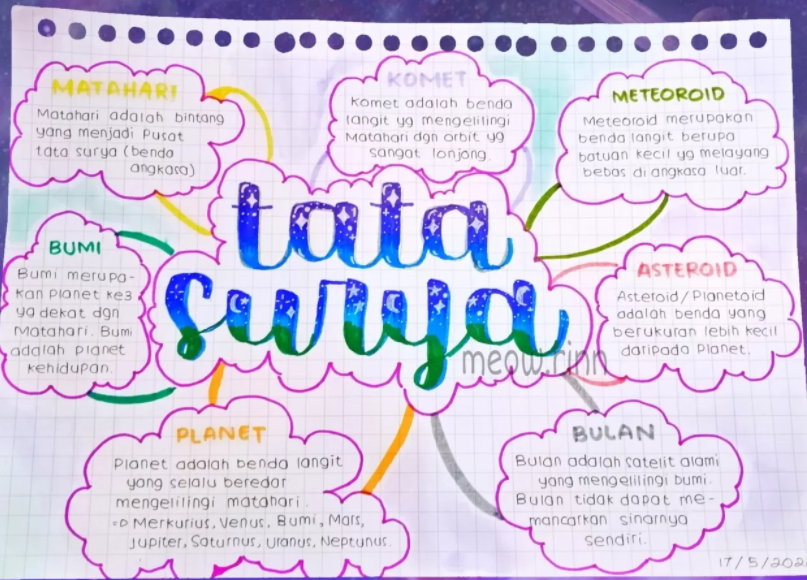 MATAHARI
Matahari adalah bintang
yang menjadi pusat
tata surya (benda
angkasa)
KOMET
Komet adalah benda
langit yg mengelilingi
Matahari dgn orbit yg
sangat lonjong.
METEOROID
Meteoroid merupakan
benda langit berupa
batuan kecil yg melayang
bebas di angkasa luar.
tata
surya
meow.rinn
BUMI
Bumi merupa-
kan planet ke3
yg dekat dgn
Matahari. Bumi
adalah planet
kehidupan.
ASTEROID
Asteroid/Planetoid
adalah benda yang
berukuran lebih kecil
daripada Planet.
PLANET
Planet adalah benda langit
yang selalu beredar
mengelilingi matahari.
=D Merkurius, Venus, Bumi, Mars,
Jupiter, Saturnus, Uranus, Neptunus.
BULAN
Bulan adalah satelit alami
yang mengelilingi bumi.
Bulan tidak dapat me-
mancarkan sinarnya
sendiri.